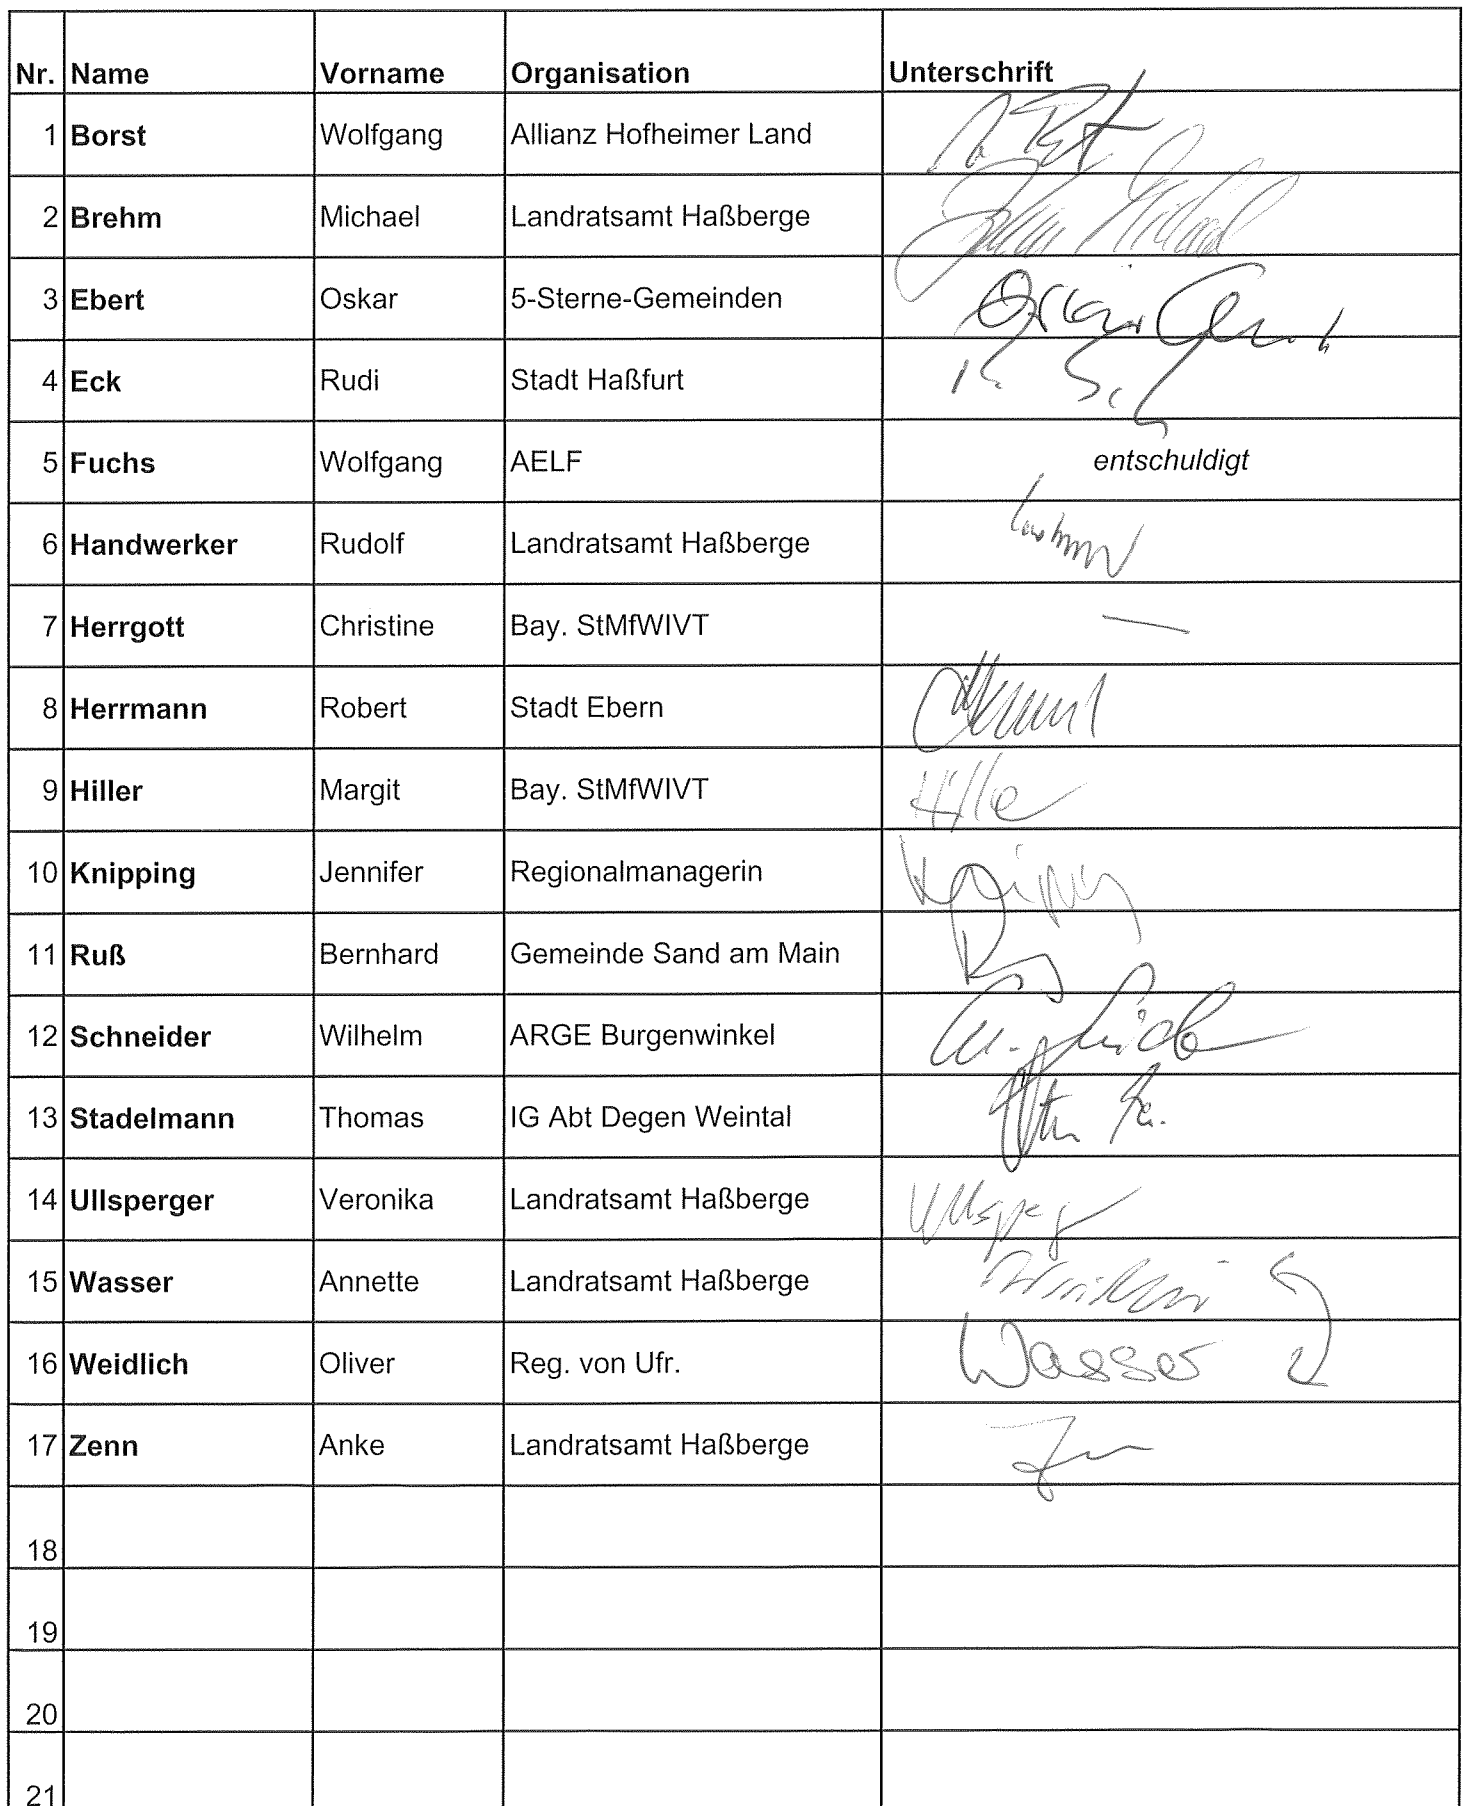 Nr. Name Vorname Organisation Unterschrift
1 Borst Wolfgang Allianz Hofheimer Land
2 Brehm Michael Landratsamt Haßberge
3 Ebert Oskar 5-Sterne-Gemeinden
4 Eck Rudi Stadt Haßfurt
5 Fuchs Wolfgang AELF entschuldigt
6 Handwerker Rudolf Landratsamt Haßberge
7 Herrgott Christine Bay. StMfWIVT —
8 Herrmann Robert Stadt Ebern
9 Hiller Margit Bay. StMfWIVT Hiller
10 Knipping Jennifer Regionalmanagerin Knipping
11 Ruß Bernhard Gemeinde Sand am Main
12 Schneider Wilhelm ARGE Burgenwinkel
13 Stadelmann Thomas IG Abt Degen Weintal
14 Ullsperger Veronika Landratsamt Haßberge Ullsperger
15 Wasser Annette Landratsamt Haßberge
16 Weidlich Oliver Reg. von Ufr. Wasser
17 Zenn Anke Landratsamt Haßberge
18
19
20
21